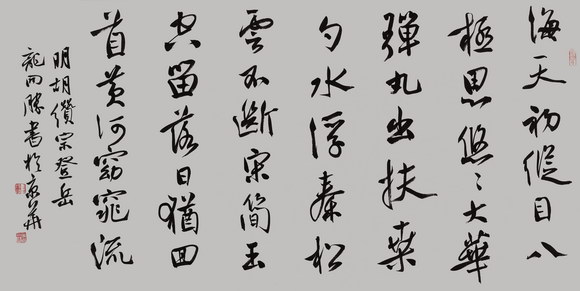 海天初縱目八
極思悠々大華
彈丸出扶桒
勺水浮秦松
雲不斷宋簡玉
空留落日猶回
首黄河窈窕流
明胡纘宗登岳
龍 勝書於京華